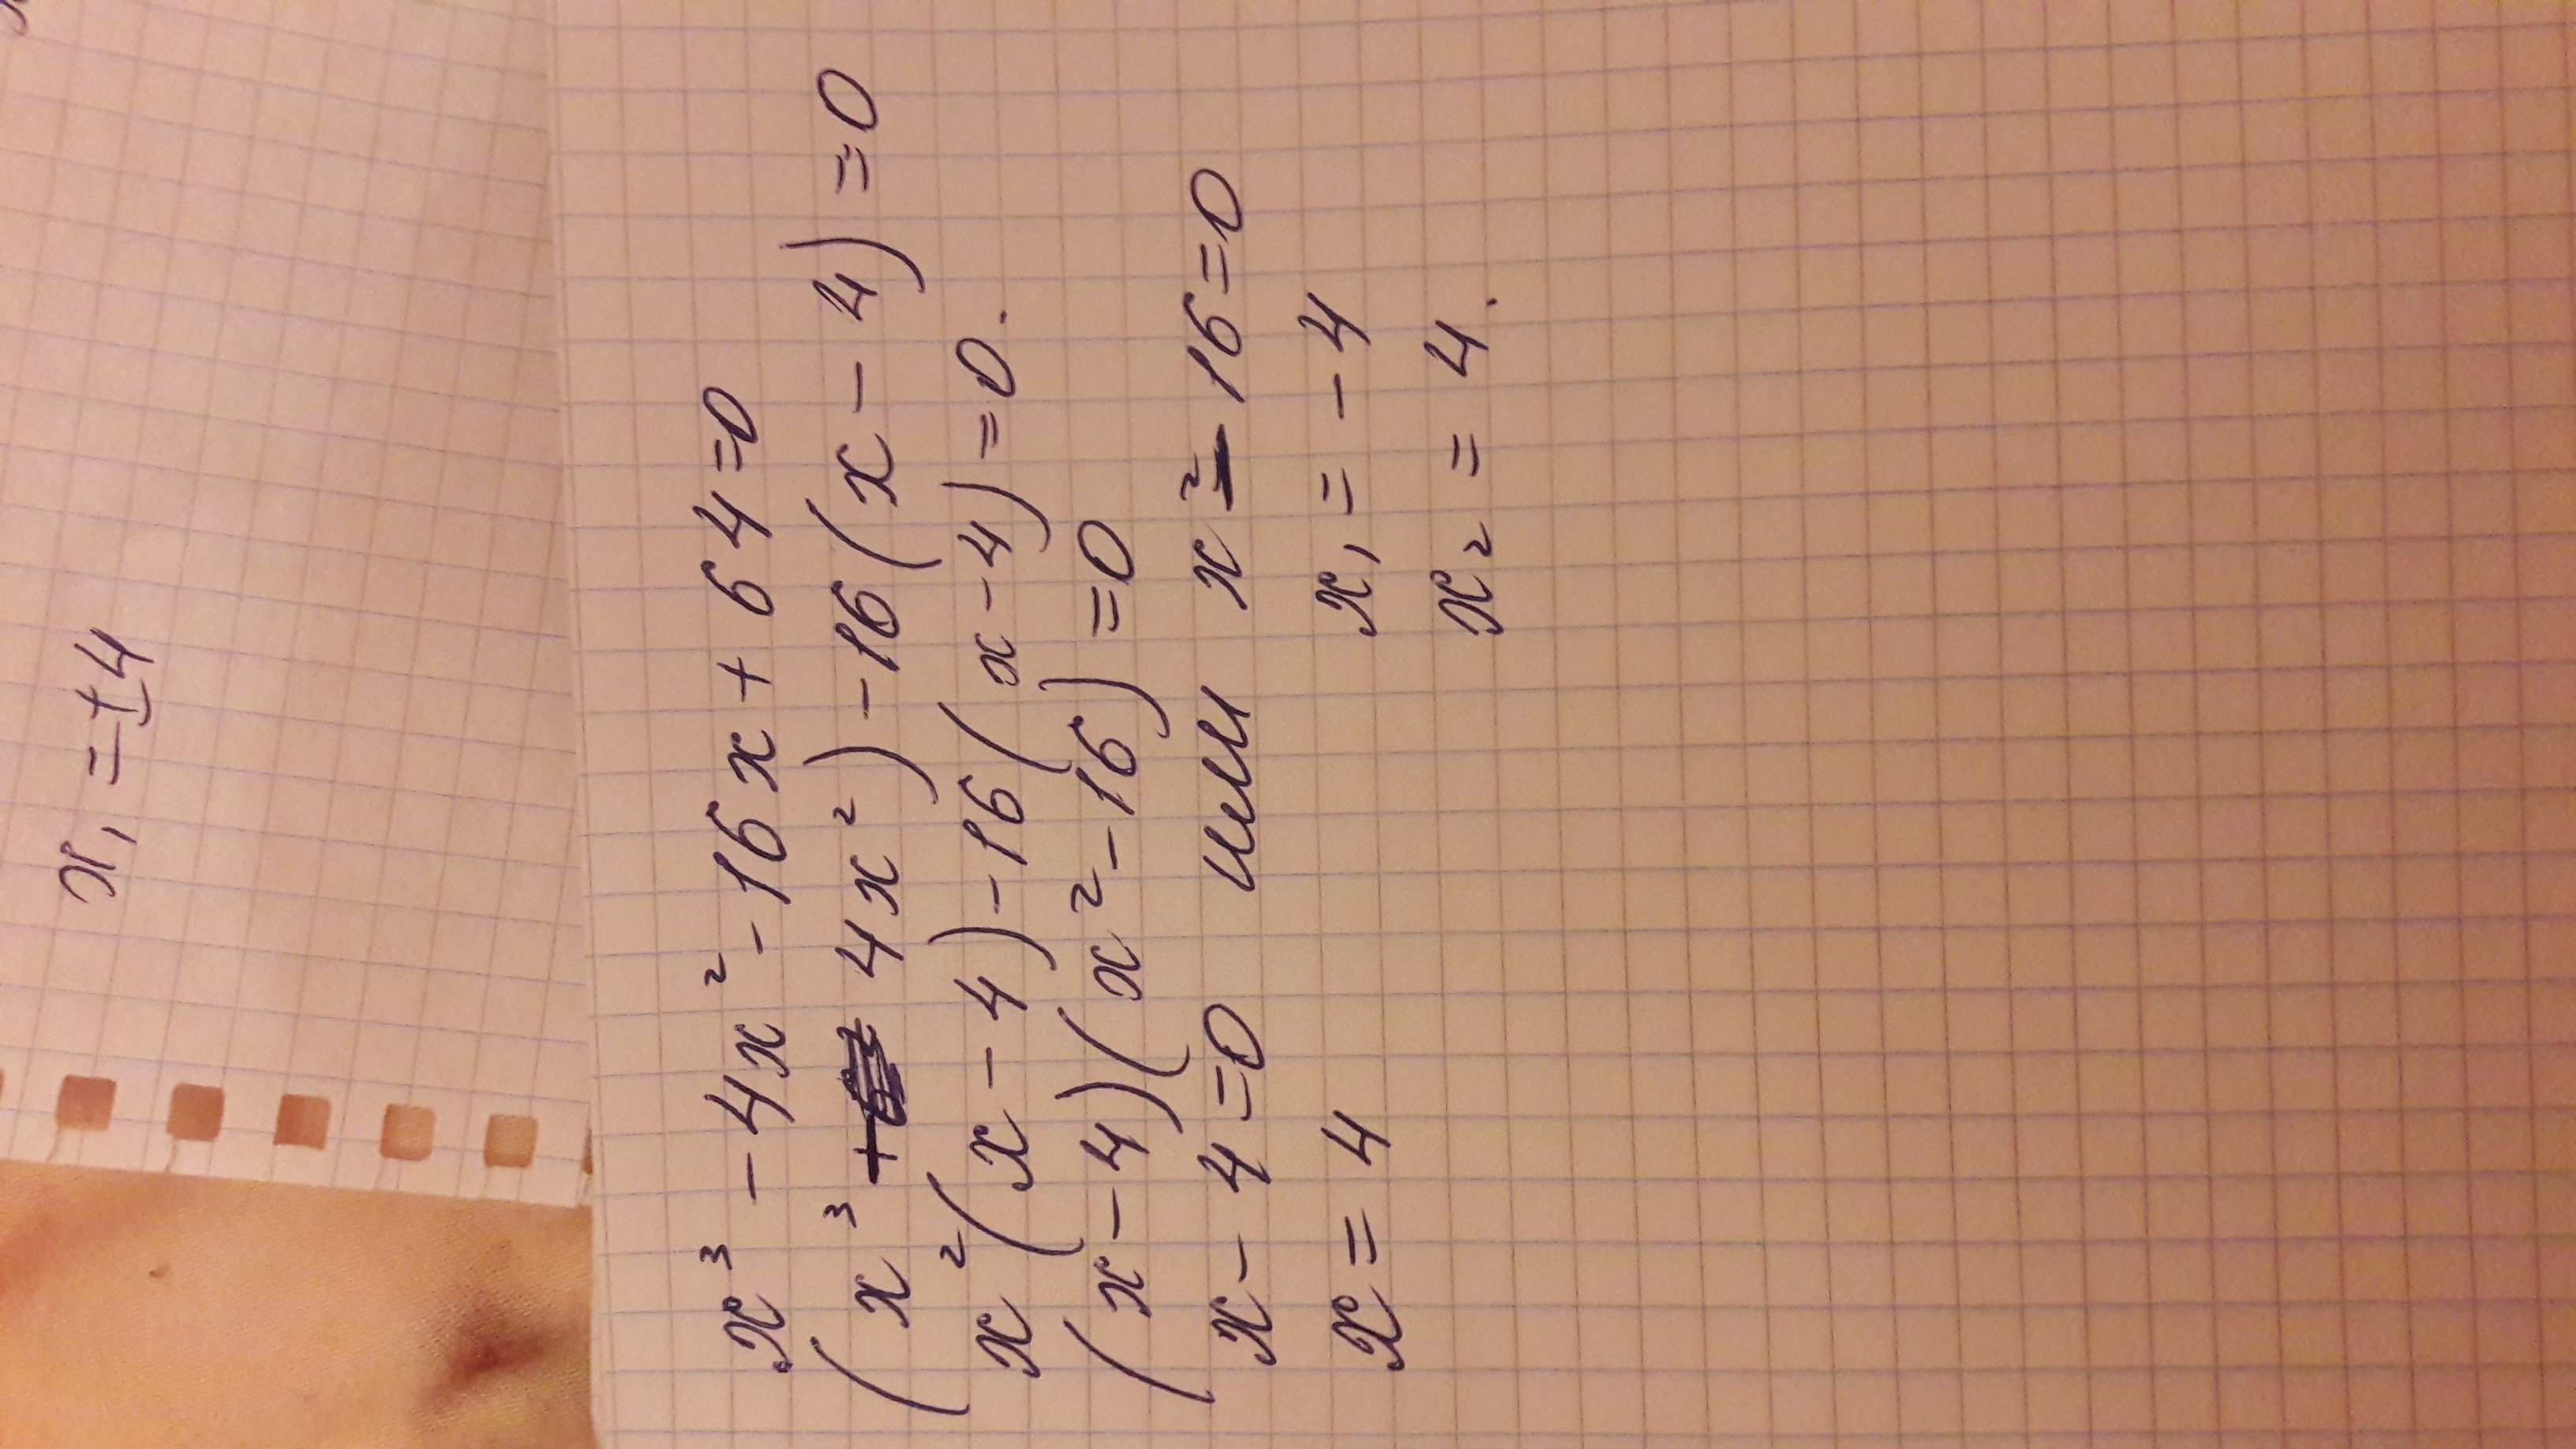 x₁ = ±4
x³ - 4x² - 16x + 64 = 0
(x³ 4x²) - 16(x - 4) = 0
x²(x - 4) - 16(x - 4) = 0.
(x - 4)(x² - 16) = 0
x - 4 = 0 или x² - 16 = 0
x = 4 x₁ = -4
x₂ = 4.